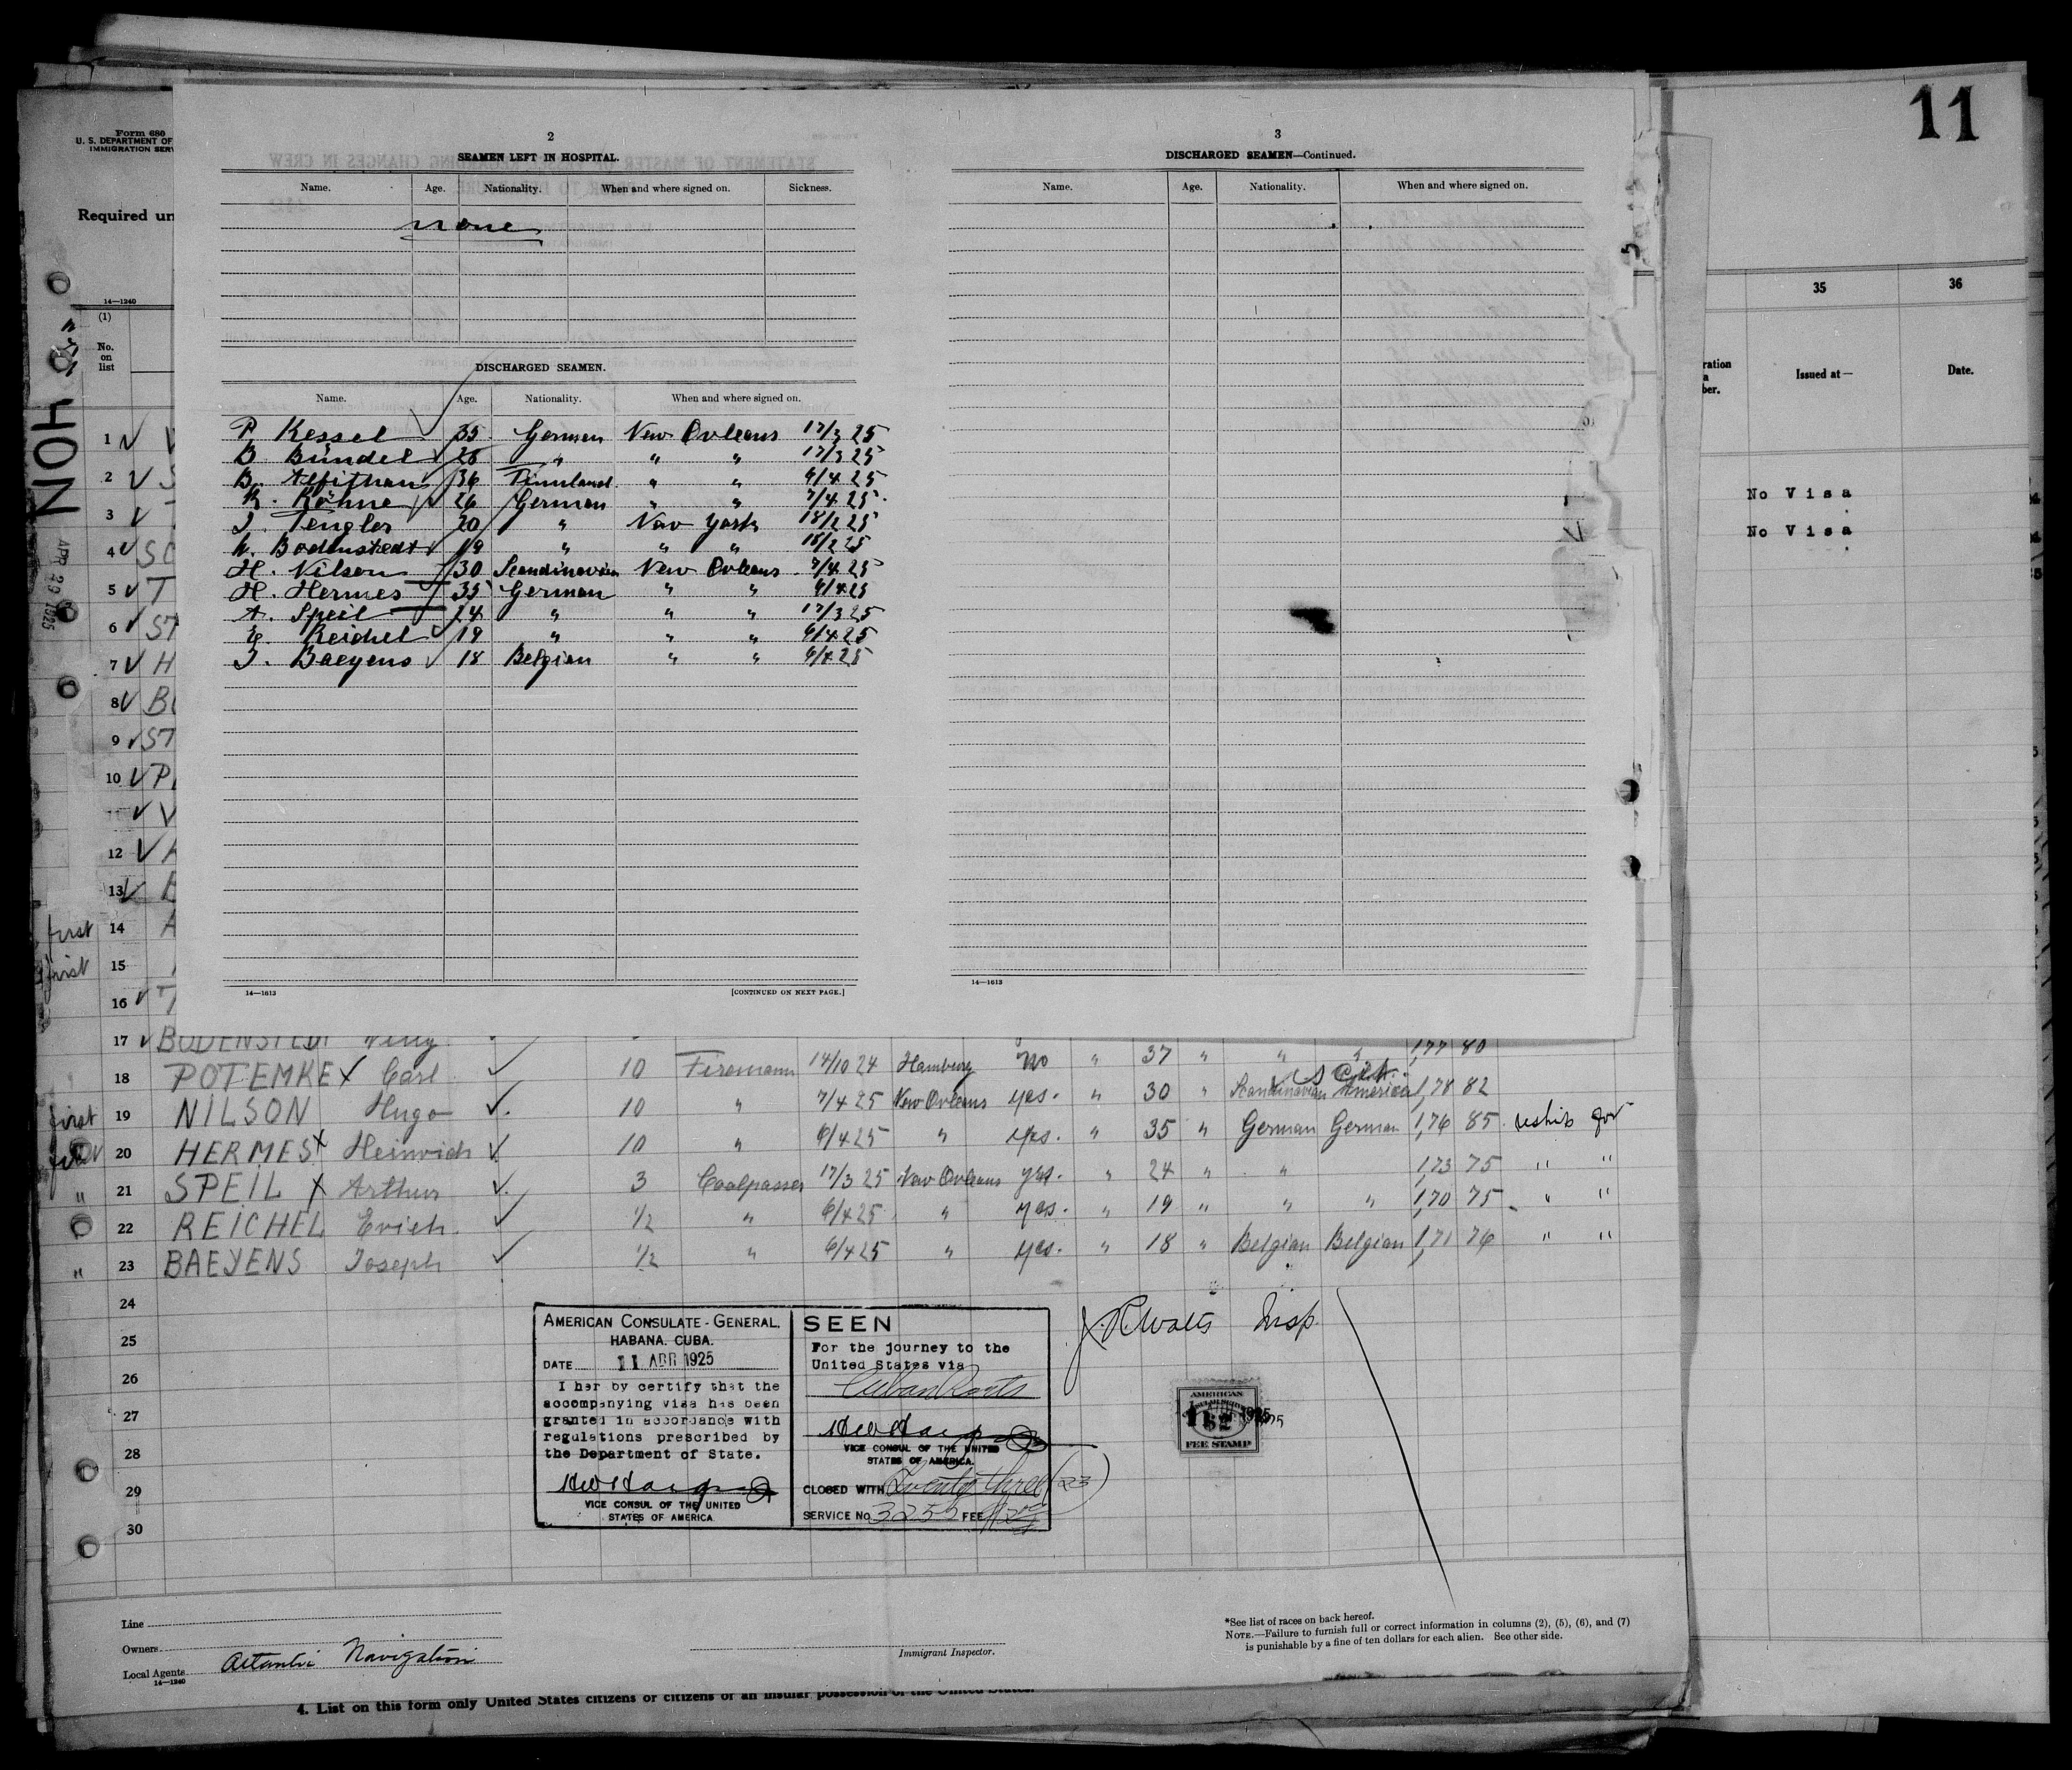 11
Form 680
U. S. DEPARTMENT OF
IMMIGRATION SERV
Required un
14—1240
(1)
No.
on
list
2
SEAMEN LEFT IN HOSPITAL.
Name. Age. Nationality. When and where signed on. Sickness.
none
DISCHARGED SEAMEN.
Name. Age. Nationality. When and where signed on.
P. Kessel 35 German New Orleans 17/3 25
B Bündel 28 " " " 17/3 25
B. 36 Finnland. " " 6/4 25
K. Köhne 26 German " " 7/4 25
J. Tengler 20 " New York 18/2 25
W. Bodenstedt 19 " " " 18/2 25
H. Nilson 30 Scandinavian New Orleans 7/4 25
H. Hermes 35 German " " 6/4 25
A. Speil 24 " " " 17/3 25
E. Reichel 19 " " " 6/4 25
J. Baeyens 18 Belgian " " 6/4 25
14—1613 [CONTINUED ON NEXT PAGE.]
3
DISCHARGED SEAMEN—Continued.
Name. Age. Nationality. When and where signed on.
14—1613
35 36
Issued at— Date.
No Visa
No Visa
APR 29 1925
1
2
3
4 SC
5 T
6 ST
7 H
8 B
9 ST
10 P
V
12
13
first 14 A
first 15
16 T
17 BODENSTEDT Willy 1,77 80
18 POTEMKE x Carl 10 Firemann 14/10 24 Hamburg no " 37 " " "
first 19 NILSON Hugo 10 " 7/4 25 New Orleans yes. " 30 " Scandinavian America 1,78 82
20 HERMES x Heinrich 10 " 6/4 25 " yes. " 35 " German German 1,76 85
" 21 SPEIL x Arthur 3 Coalpasser 17/3 25 New Orleans yes. " 24 " " 1,73 75 " "
22 REICHEL Erich 1/2 " 6/4 25 " yes. " 19 " " " 1,70 75 " "
" 23 BAEYENS Joseph 1/2 " 6/4 25 " yes. " 18 " Belgian Belgian 1,71 76 " "
24
25
26
27
28
29
30
AMERICAN CONSULATE-GENERAL,
HABANA. CUBA.
DATE 11 APR 1925
I her by certify that the
accompanying visa has been
granted in accordance with
regulations prescribed by
the Department of State.
VICE CONSUL OF THE UNITED
STATES OF AMERICA
SEEN
For the journey to the
United States via
Cuban Ports
VICE CONSUL OF THE UNITED
STATES OF AMERICA.
CLOSED WITH Twenty three (23)
SERVICE No. 3255 FEE
Insp.
AMERICAN
FEE STAMP
Line
Owners
Local Agents Atlantic Navigation
14—1240
Immigrant Inspector.
*See list of races on back hereof.
NOTE.—Failure to furnish full or correct information in columns (2), (5), (6), and (7)
is punishable by a fine of ten dollars for each alien. See other side.
4. List on this form only United States citizens or citizens of an insular possession of the United States.